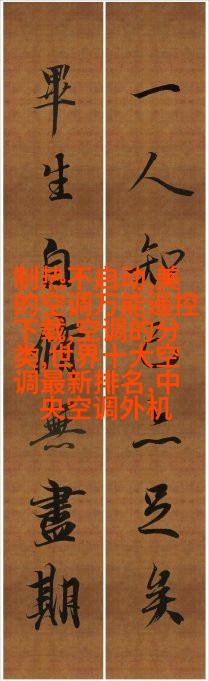 一人知己亦足矣
畢生自修無盡期
制热不启动,美
的空调万能遥控
下载,空调的分
类,世界十大空
调最新排名,中
央空调外机